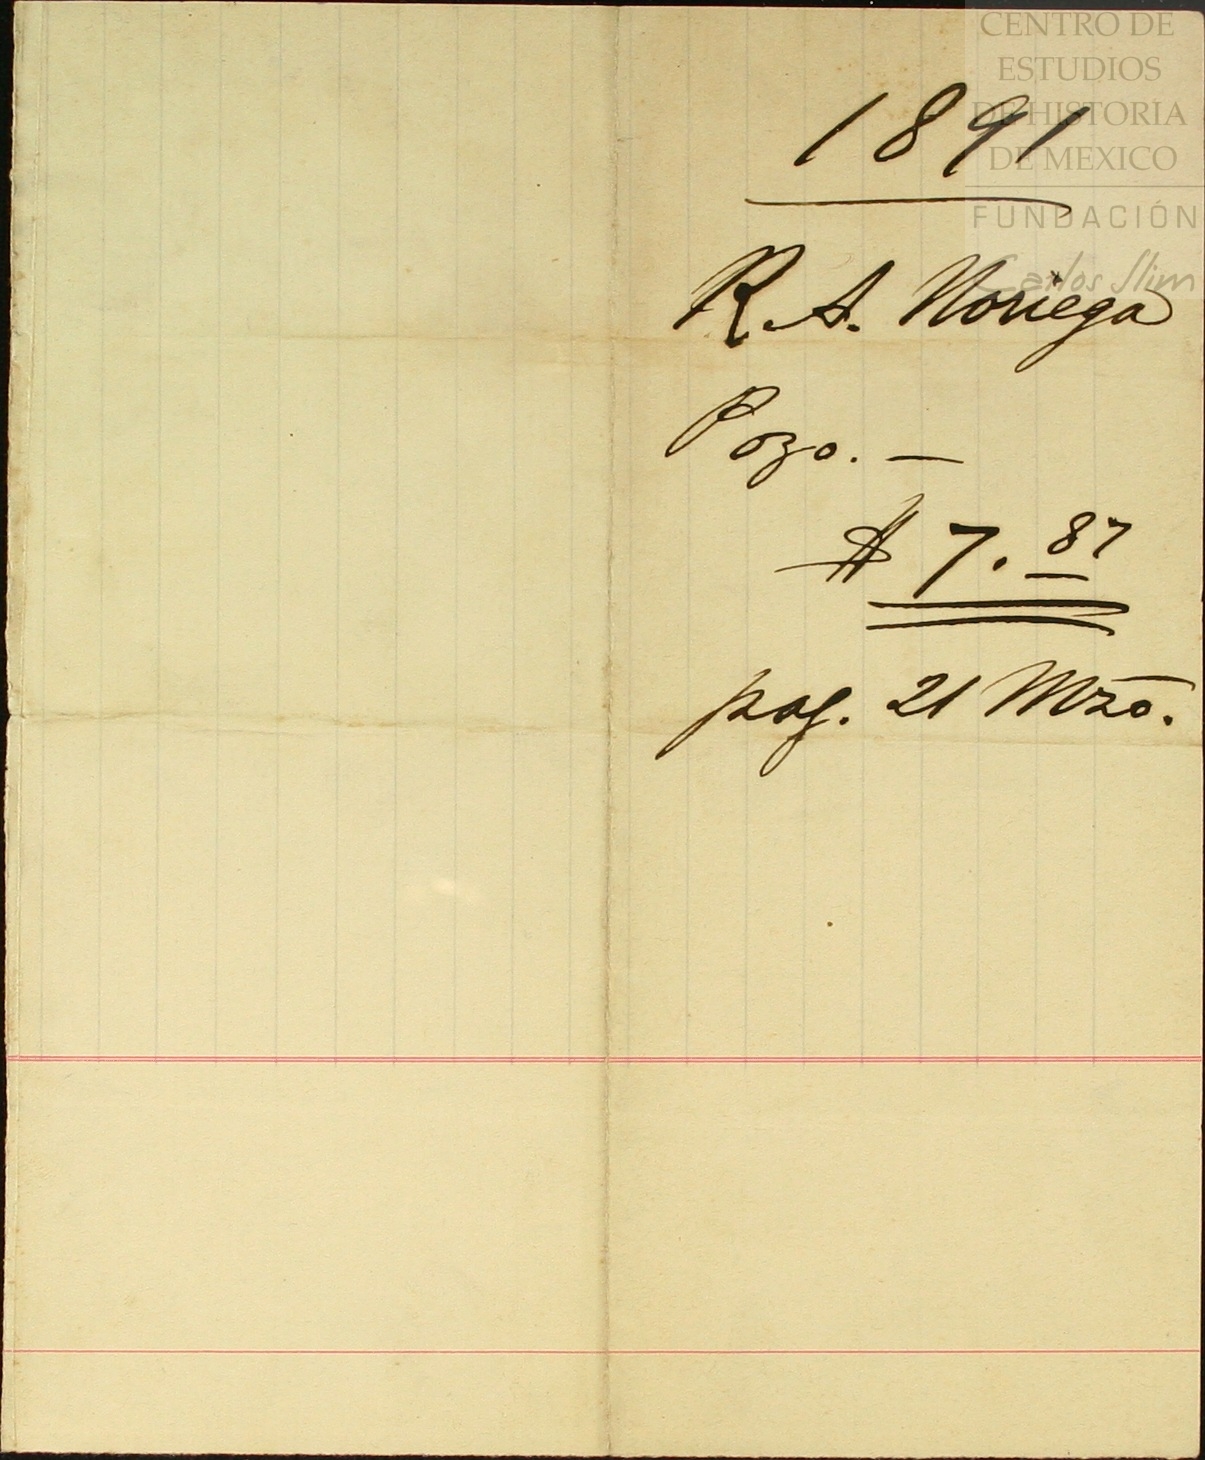 CENTRO DE
ESTUDIOS
DE HISTORIA
DE MEXICO
FUNDACIÓN
Carlos Slim
1891
R. A. Noriega
Pozo. —
$ 7. 87
pag. 21 Mzo.